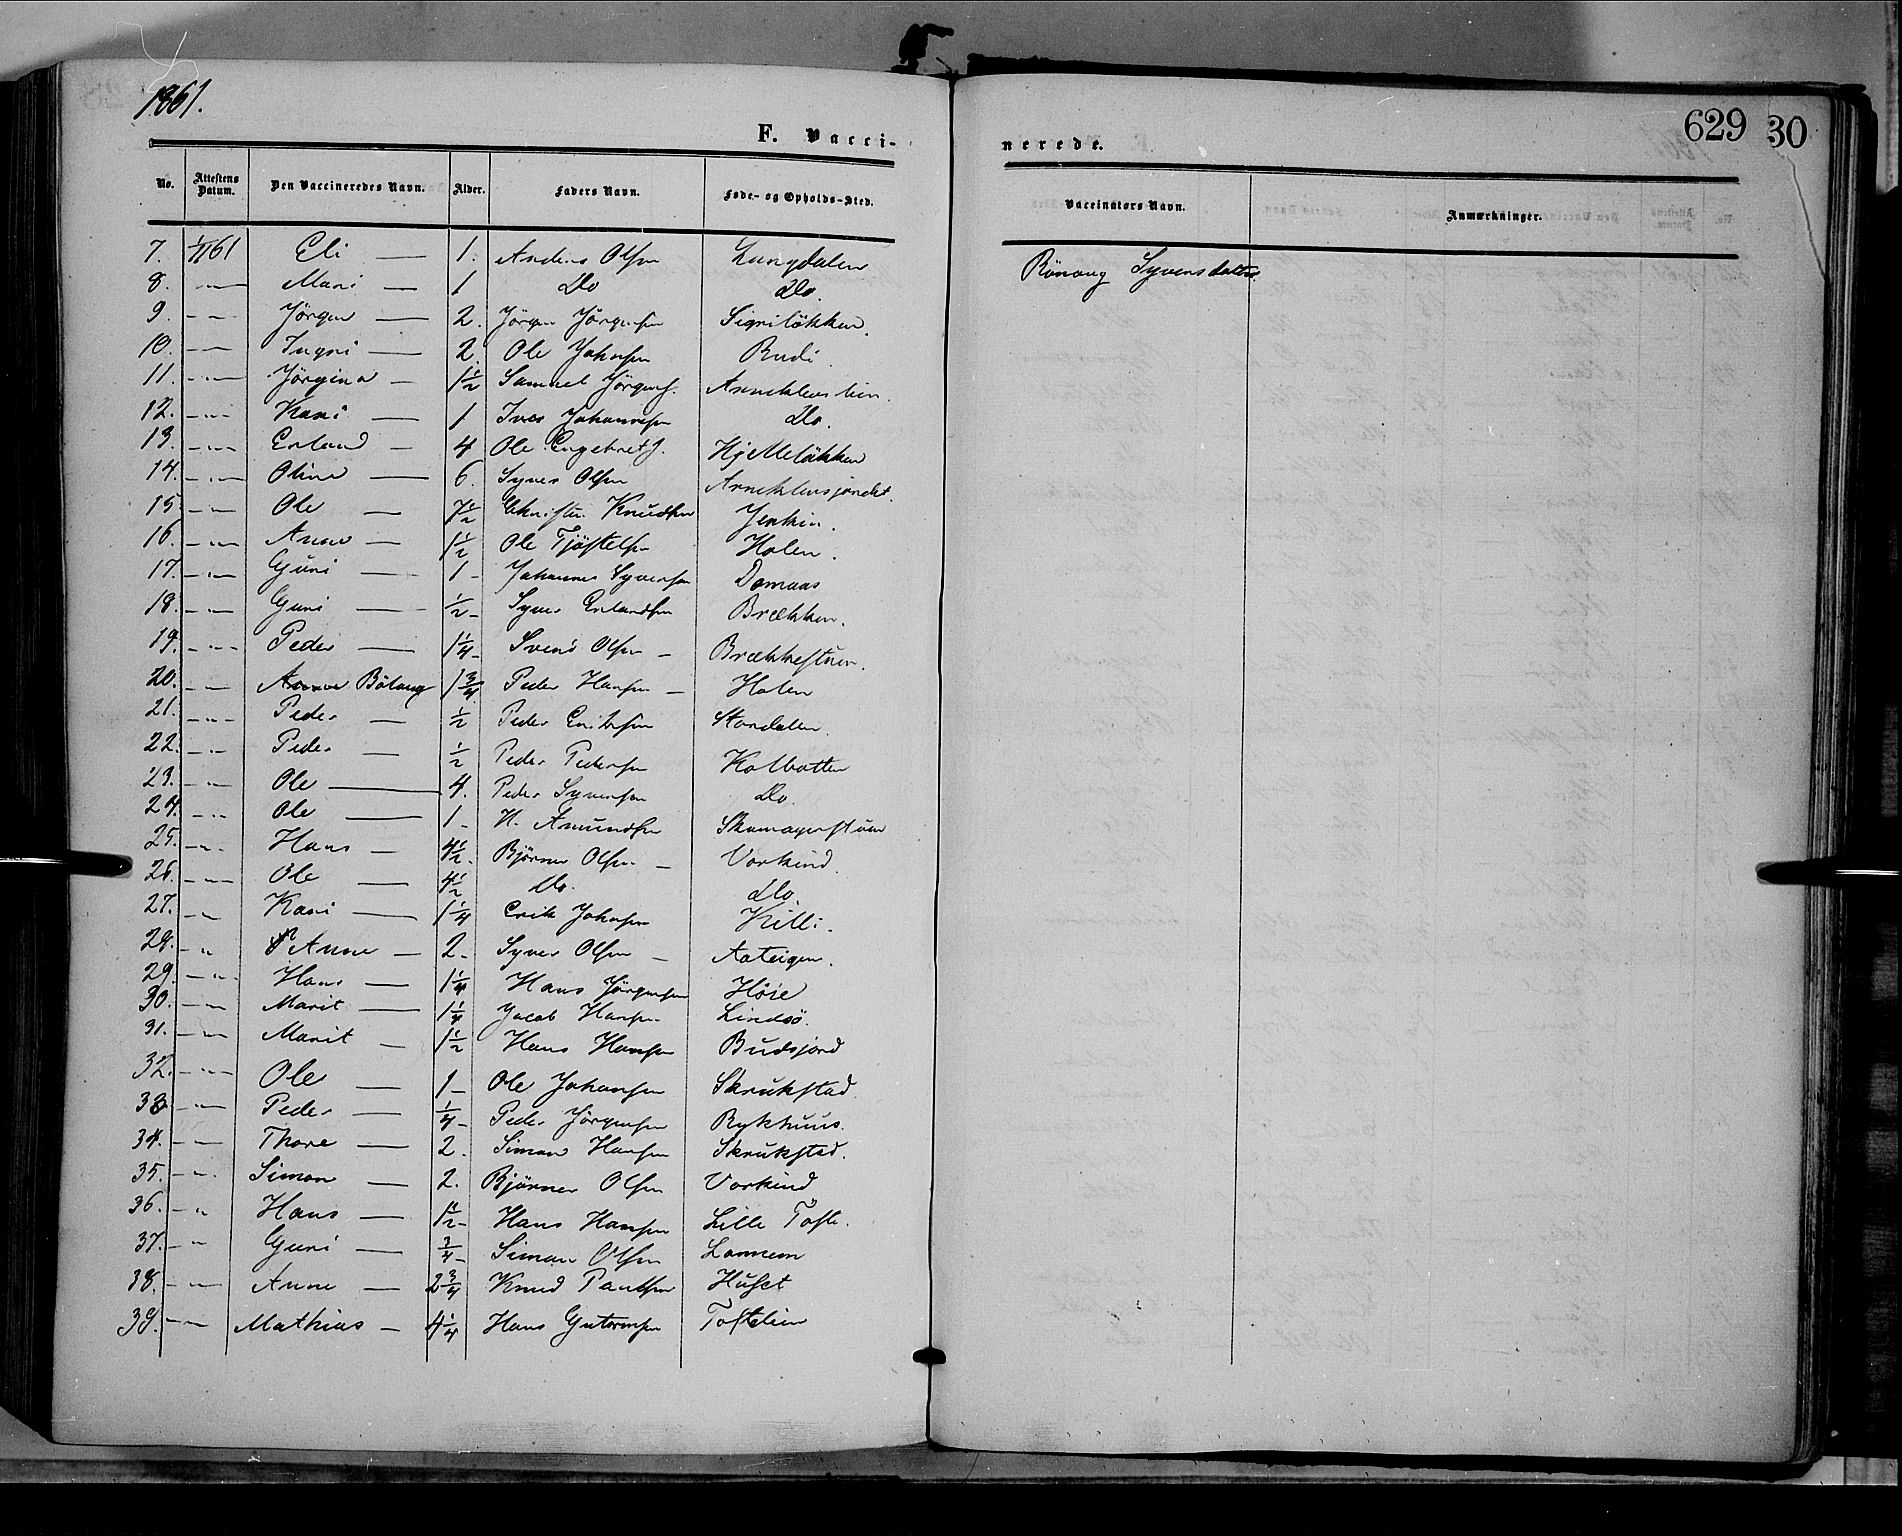 1861.
F. Vacci-
nerede.
629 30
No. Attestens Datum. Den Vaccineredes Navn. Alder. Faders Navn. Føde- og Opholds-Sted. Vaccinators Navn. Anmærkninger.
7. 1/7 61 Eli — 1. Anders Olsen Lungdalen Rönnaug Syversdatter
8. —"— Mari — 1 Do Do.
9. —"— Jörgen — 2. Jörgen Jörgensen Signilökken.
10. —"— Ingri — 2. Ole Johnsen Rudi.
11. —"— Jörgina — 1 1/2 Samuel Jörgens. Arneklevslien.
12. —"— Kari — 1 Iver Johannesen Do.
13. —"— Erland — 4 Ole Engebrets. Hjelleløkken
14. —"— Oline — 6. Syver Olsen Arneklevsjordet.
15. —"— Ole — 7 1/2 Christen Knudsen Jerkin.
16. —"— Anne — 1 1/2 Ole Tjöstelsen Holen.
17. —"— Guri — 1 — Johannes Syversen Domaas
18. —"— Guri — 1/2 — Syver Erlandsen Brækken.
19. —"— Peder — 1 1/4 — Svend Olsen — Brækkestuen.
20. —"— Anne Bölaug 1 3/4 Peder Hansen — Holen
21. —"— Peder — 1/2 Peder Eriksen Stordalen.
22. —"— Peder — 1/2 Peder Pedersen Kolbotten
23. —"— Ole — 4. Peder Syversen Do.
24. —"— Ole — 1 — H. Amundsen Skomagerstuen
25. —"— Hans — 4 1/2 — Björner Olsen — Vorkind.
26. —"— Ole — 4 1/2 Do. Do.
27. —"— Kari — 1 1/4 Erik Johnsen Killi.
28. " Anne — 2 — Syver Olsen — Aateigen.
29. —"— Hans — 1 1/4 Hans Jörgensen Höie
30. —"— Marit — 1 1/4 Jacob Hansen Lindsö.
31. —"— Marit — 1 1/2 Hans Hansen Budsjord
32. —"— Ole — 1 — Ole Johansen Skrukstad
33. —"— Peder — 1/4 — Peder Jörgensen Rykhuus.
34. —"— Thore — 2. Simen Hansen Skrukstad.
35. —"— Simen — 2. Björner Olsen Vorkind
36. —" Hans — 1 1/2 — Hans Hansen Lille Tofte.
37. —" Guri — 3/4 — Simen Olsen Lannem
38. —"— Anne — 2 3/4 Knud Paulsen Huset
39. —"— Mathias — 4 1/4 Hans Gutormsen Toftelien